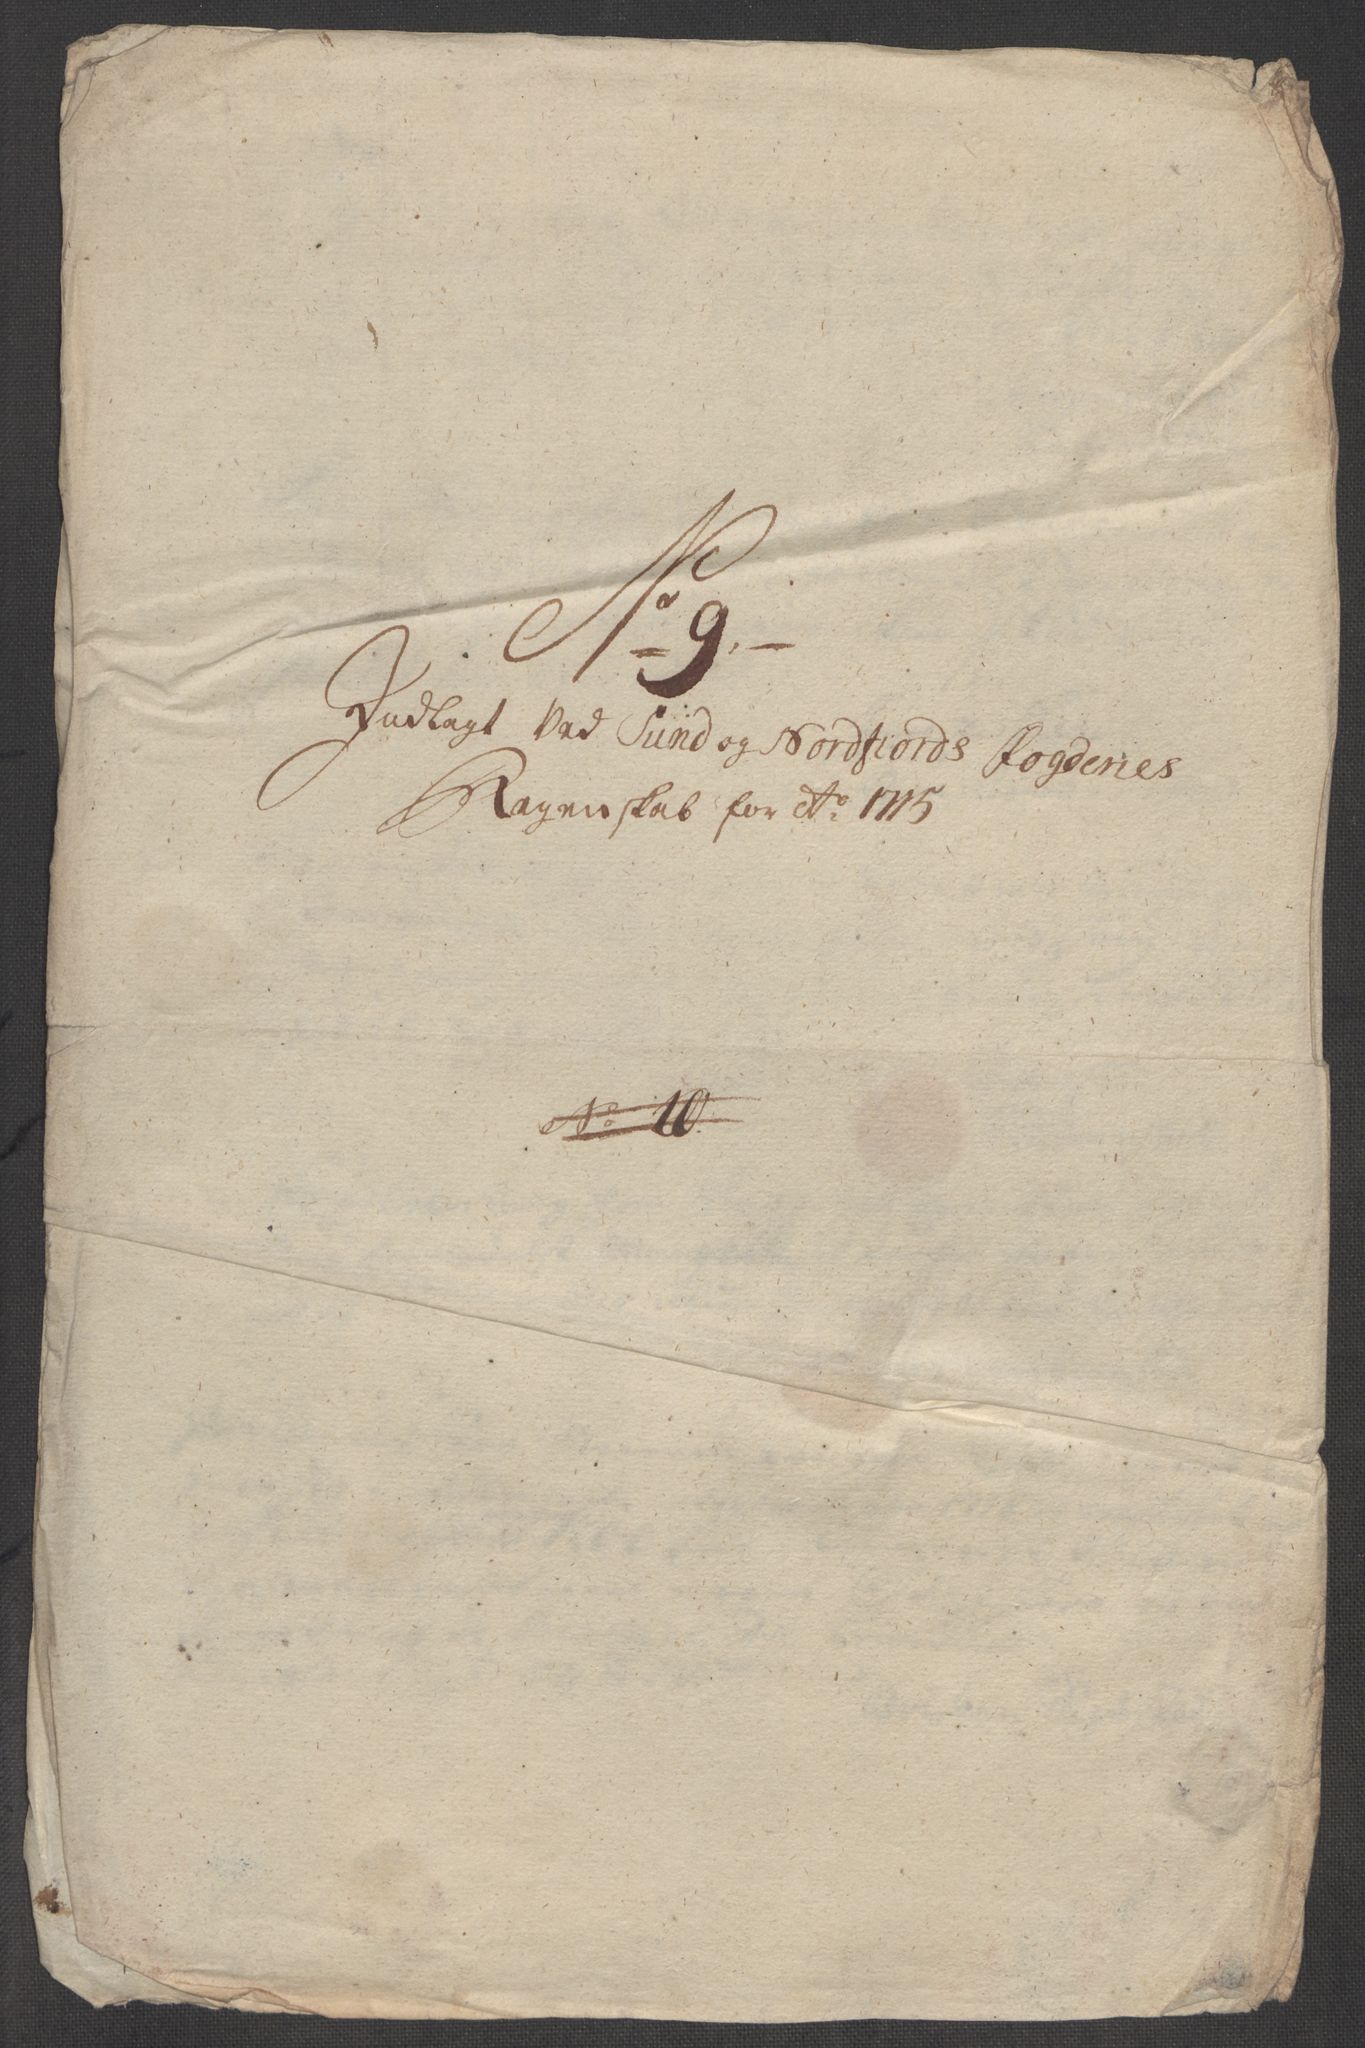 No 9.
Indlagt Ved Sünd og Nordfiords Fogderies
Regenskab for Ao: 1715
No: 10